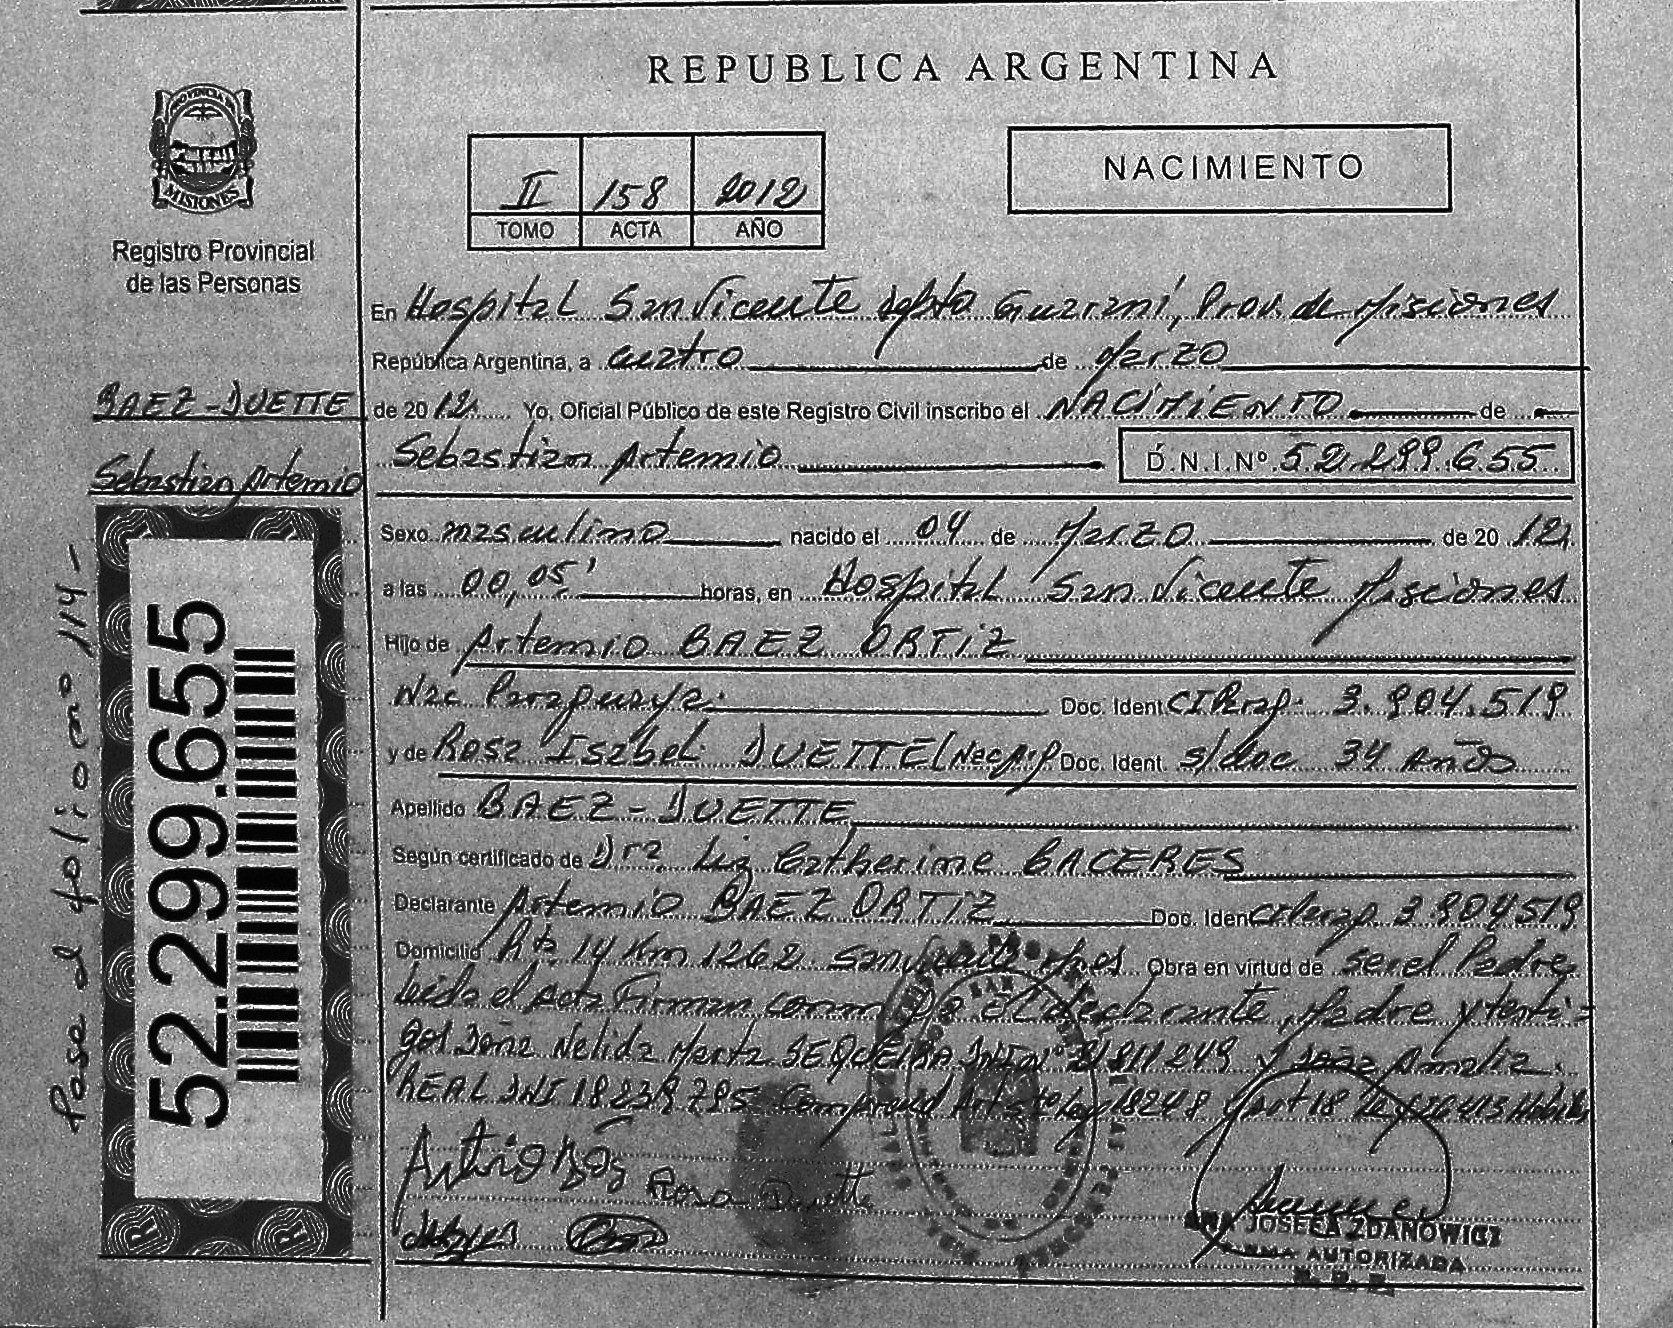 REPUBLICA ARGENTINA
PROVINCIA DE
MISIONES
Registro Provincial
de las Personas
II 158 2012
TOMO ACTA AÑO
NACIMIENTO
En Hospital San Vicente Dpto Guarani, Prov. de Misiones
República Argentina, a cuatro de Marzo
de 2012 Yo, Oficial Público de este Registro Civil inscribo el NACIMIENTO de
Sebastian Artemio D.N.I.Nº 52.299.655
BAEZ-DUETTE
Sebastian Artemio
Sexo masculino nacido el 04 de Marzo de 2012
a las 00,05' horas, en Hospital San Vicente Misiones
Hijo de Artemio BAEZ ORTIZ
Nac Paraguaya Doc. Ident CI Parag. 3.904.519
y de Rosa Isabel DUETTE (Nac Arg Doc. Ident. s/doc 34 Años
Apellido BAEZ-DUETTE
Según certificado de Dra. Liz Catherine CACERES
Declarante Artemio BAEZ ORTIZ Doc. Iden CI Parag 3.904519
Domicilio Rta. 14 Km 1262 San Vicente Mnes Obra en virtud de ser el Padre
Leida el Acta Firman conmigo el declarante, Madre y testi=
gos Doña Nelida Marta SEQUEIRA DNI Nº 21811249 y Doña Amalia
LEAL DNI 18239795
Rosa Duette
JOSEFA ZDANOWICZ
FIRMA AUTORIZADA
52.299.655
Pasa al folio nº 114-